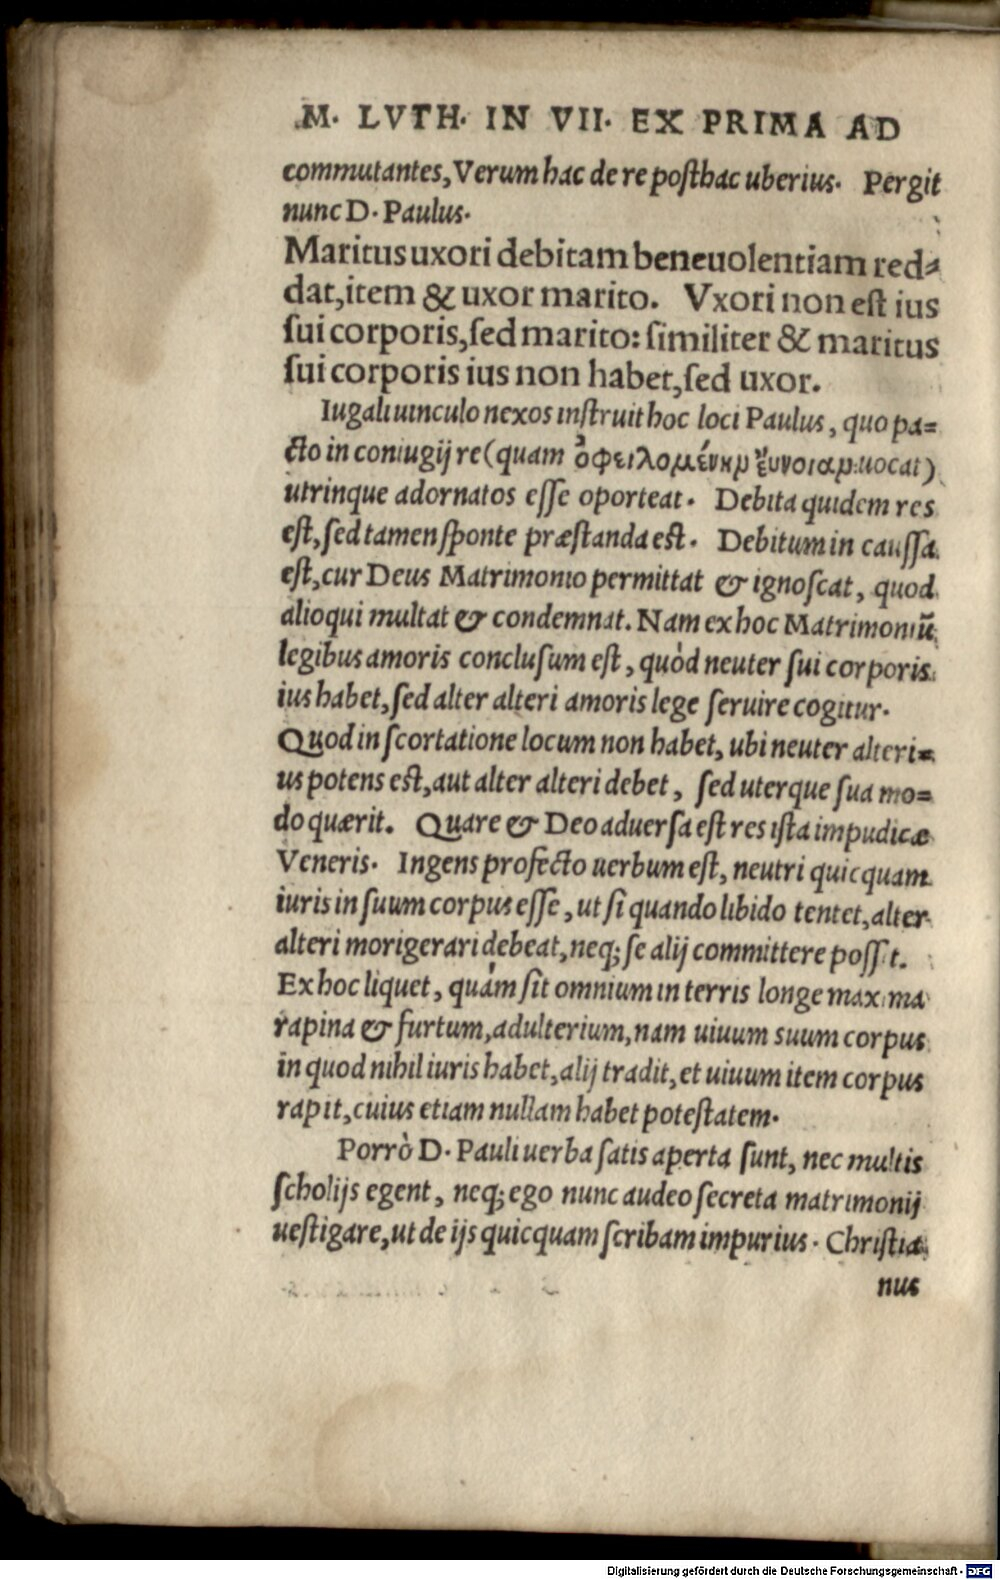 M. LVTH. IN VII. EX PRIMA AD
commutantes, Verum hac de re posthac uberius. Pergit
nunc D. Paulus.
Maritus uxori debitam beneuolentiam red=
dat, item & uxor marito. Vxori non est ius
sui corporis, sed marito: similiter & maritus
sui corporis ius non habet, sed uxor.
Iugali uinculo nexos instruit hoc loci Paulus, quo pa=
cto in coniugij re (quam ὀφειλομένην ἔυνοιαν uocat)
utrinque adornatos esse oporteat. Debita quidem res
est, sed tamen sponte præstanda est. Debitum in caussa
est, cur Deus Matrimonio permittat & ignoscat, quod
alioqui multat & condemnat. Nam ex hoc Matrimoniū
legibus amoris conclusum est, quòd neuter sui corporis
ius habet, sed alter alteri amoris lege seruire cogitur.
Quod in scortatione locum non habet, ubi neuter alteri=
us potens est, aut alter alteri debet, sed uterque sua mo=
do quærit. Quare & Deo aduersa est res ista impudicæ
Veneris. Ingens profecto uerbum est, neutri quicquam
iuris in suum corpus esse, ut si quando libido tentet, alter
alteri morigerari debeat, neq; se alij committere possit.
Ex hoc liquet, quàm sit omnium in terris longe maxima
rapina & furtum, adulterium, nam uiuum suum corpus
in quod nihil iuris habet, alij tradit, et uiuum item corpus
rapit, cuius etiam nullam habet potestatem.
Porrò D. Pauli uerba satis aperta sunt, nec multis
scholijs egent, neq; ego nunc audeo secreta matrimonij
uestigare, ut de ijs quicquam scribam impurius. Christia
nus
Digitalisierung gefördert durch die Deutsche Forschungsgemeinschaft - DFG